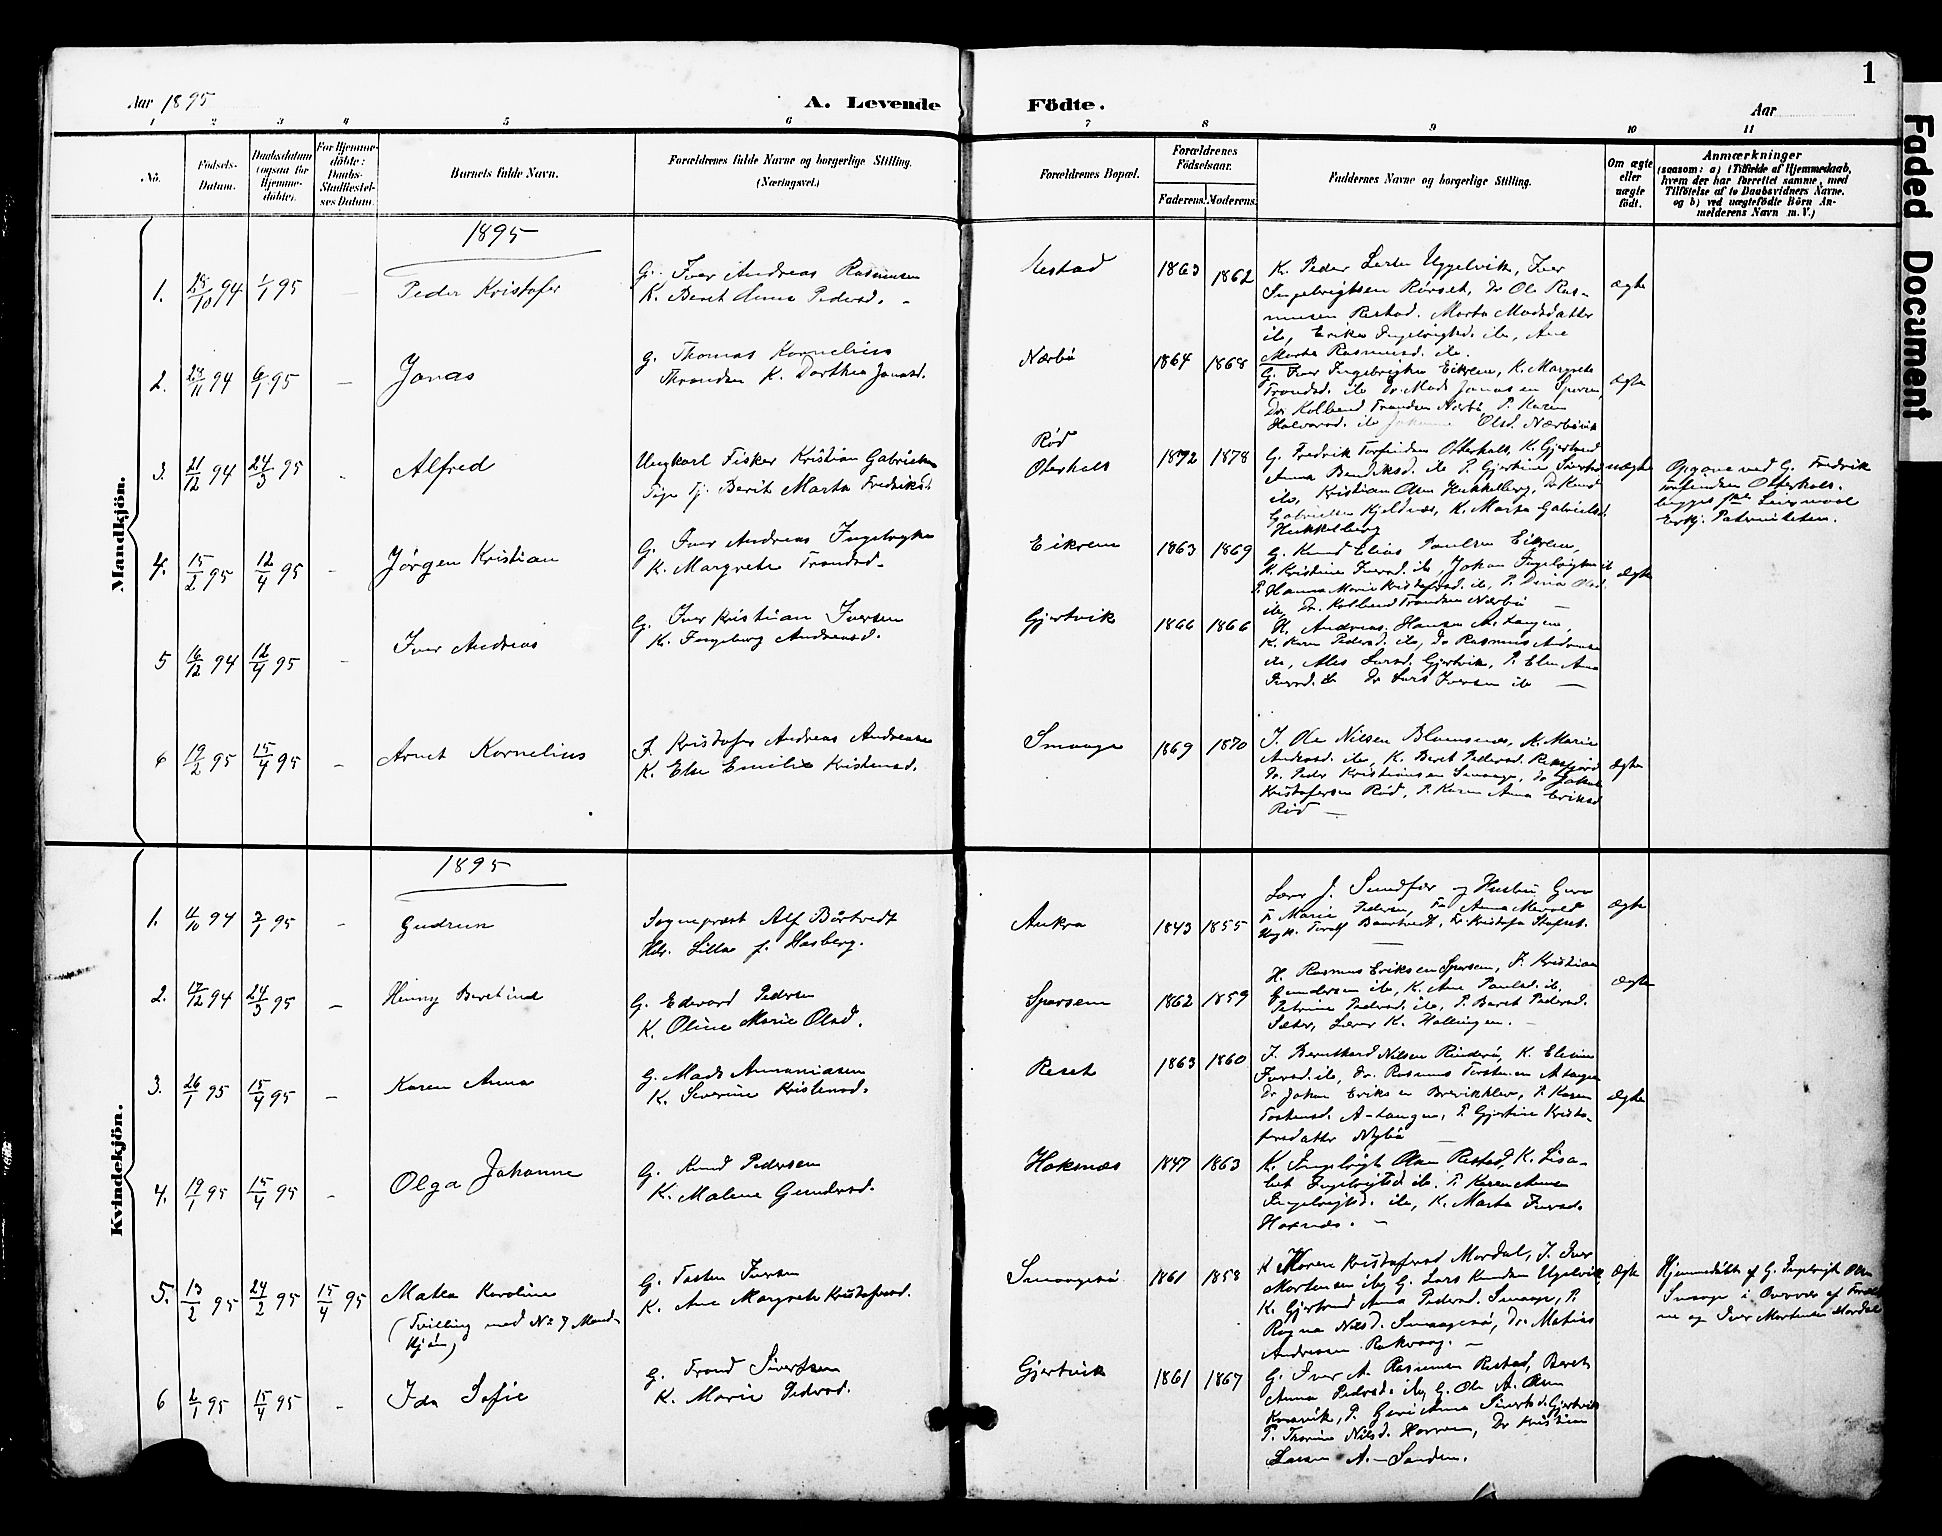 1
Faded Document
Aar 1895
A. Levende Födte.
Aar
1 2 3 4 5 6 7 8 9 10 11
No.
Födsels-Datum.
Daabsdatum (ogsaa for Hjemmedöbte).
For Hjemmedöbte: Daabs-Stadfæstelses Datum.
Barnets fulde Navn.
Forældrenes fulde Navne og borgerlige Stilling. (Næringsvei.)
Forældrenes Bopæl.
Forældrenes Födselsaar.
Faderens. Moderens.
Faddernes Navne og borgerlige Stilling.
Om ægte eller uægte födt.
Anmærkninger
(saasom: a) i Tilfælde af Hjemmedaab, hvem der har forrettet samme, med Tilföielse af to Daabsvidners Navne, og b) ved uægtefödte Börn Anmelderens Navn m. V.)
Mandkjön.
1895
1. 28/10 94 1/1 95 Peder Kristofer
G. Iver Andreas Rasmusen
K. Beret Anna Pedersd.
Restad 1863 1862
K. Peder Larsen Uggelvik, Iver
Ingebrigtsen Rørset, Dr Ole Ras-
musen Restad. Marta Madsdatter
ib, Erika Ingebrigtsd. ib, Ane
Marta Rasmusd. ib.
ægte
2. 28/11 94 6/1 95 Jonas
G. Thomas Kornelius
Throndsen K. Dorthea Jonasd.
Nærbø 1864 1868
G. Iver Ingebrigtsen Eikrem, K. Margrete
Trondsd. ib Dr. Mads Jonasen
Dr. Kolbend Trondsen Nærbø, P. Karen
Halvorsd. ib Johanne Olsd. Nærbøvik
ægte
3. 21/12 94 24/3 95 Alfred
Ungkarl Fisker Kristian Gabrielsen
Pige Tj. Berit Marta Fredriksd.
Rød
Oterhals 1872 1878
G. Fredrik Torfinden Otterhals, K. Gjertrud
Anna Bendiksd. ib P. Gjertine Sivertsd
ib, Kristian Olsen Hukkelberg, Dr Knud
Gabrielsen Kjeldnes, K. Marta Gabrielsd.
Hukkelberg
uægte
Opgave ved G. Fredrik
Torfinden Otterhals.
begges Leiermaal
Erkj. Paterniteten.
4. 15/2 95 12/4 95 Jørgen Kristian
G. Iver Andreas Ingebrigtsen
K. Margrete Trondsd.
Eikrem 1863 1869
G. Knud Elias Paulsen Eikrem,
K. Kristine Iversd. ib, Johan Ingebrigtsen ib
P. Hanna Marie Kristofersd. ib, P. Dina Olsd.
ib, Dr. Kolbend Trondsen Nærbø
ægte
5 16/12 94 12/4 95 Iver Andreas
G. Iver Kristian Iversen
K. Ingeborg Andreasd.
Gjertvik 1866 1866
K. Andreas Hansen A-Langen,
K. Karen Pedersd. ib, Dr Rasmus Andreasen
ib, Ales Larsd. Gjertvik, P. Elen Ane
Iversd. ib Dr Lars Iversen ib
6 19/2 95 15/4 95 Arnet Kornelius
I. Kristofer Andreas Andreasen
K. Else Emilie Kristensd.
Smaage 1869 1870
I. Ole Nilsen Blomsnes, K. Marie
Andreasd. ib, K. Beret Pedersd. Riksfjord
Dr. Peder Kristiansen Smaage, Dr Johan
Kristofersen Rød, P. Karen Anna Eriksd
Rød
ægte
Kvindekjön.
1895
1. 4/10 94 2/1 95 Gudrun
Sogneprest Alf Bårtvedt
Hdr. Lilla f. Hasberg.
Aukra 1843 1855
Lærer J. Sundfær og Hustru Guro
Fr Marie Pedersen, Fr Anna
ægte
2. 17/12 94 24/3 95 Henny Beretine
G. Edvard Pedersen
K. Oline Marie Olsd.
Sporsem 1862 1859
H. Rasmus Eriksen Sporsem, F. Kristian
Gundersen ib, K. Ane Paulsd. ib.
Petrine Pedersd. ib, P. Beret Pedersd.
Sæter, Lærer K. Hollingen.
ægte
3. 26/1 95 15/4 95 Karen Anna
G. Mads Annaniasen
K. Severine Kristensd.
Reset 1863 1860
I. Bernthard Nilsen Rinderø, K. Elesine
Iversd. ib, Dr. Rasmus Torstensen A-Langen
Dr Johan Eriksen Breivikhlev, P. Karen
Tostensd. A-Langen, P. Gjertine Kristo-
fersdatter Nybø
ægte
4. 19/1 95 15/4 95 Olga Johanne
G. Knud Pedersen
K. Malene Gundersd.
Hoksnæs 1847 1863
K. Ingebrigt Olsen Restad, K. Lisa-
bet Ingebrigtsd. ib. P. Karen Anna
Ingebrigtsd. ib, K. Marta Iversd.
Hoksnæs.
5. 13/2 95 24/2 95 15/4 95 Matea Karoline
(Tvilling med No 7 Mand-
kjøn)
G. Tosten Iversen
K. Ane Margrete Kristofersd.
Smaagesø 1861 1858
K Maren Kristofersd Mordal, I. Iver
Mortensen ib, G. Lars Knudsen Ugelvik,
K. Gjertrud Anna Pedersd. Smaage, P.
Ragna Nilsd. Smaagesø, Dr. Matias
Andreasen Rakvaag.
ægte
Hjemmedøbt af G. Ingebrigt Olsen
Smaage i Overvær af Foræl
ne og Iver Mortensen Mordal
6 2/1 95 15/4 95 Ida Sofie
G. Trond Sivertsen
K. Marie Pedersd.
Gjertvik 1861 1867
G. Iver A. Rasmusen Restad, Beret
Anna Pedersd. ib, G. Ole A. Olsen
P. Guri Anna Sivertsd. Gjertvik
P. Thorine Nilsd. Horrem, Dr Kristian
Larsen A-Sanden.